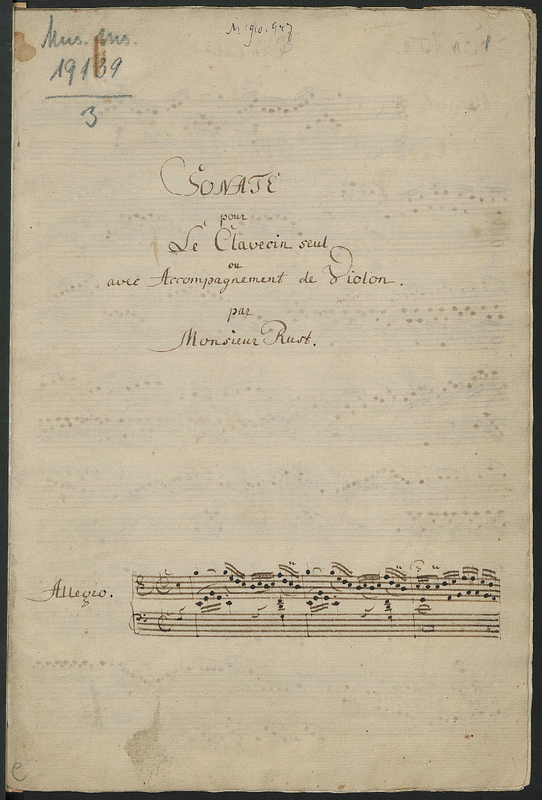 Mus. ms.
19139
3
1
SONATE
pour
Le Clavecin seul
ou
avec Accompagnement de Violon.
par
Monsieur Rust.
Allegro.